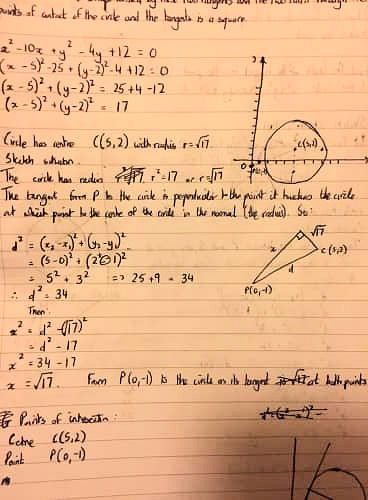 points of contact of the circle and the tangents is a square.
x² - 10x + y² - 4y + 12 = 0
(x - 5)² - 25 + (y - 2)² - 4 + 12 = 0
(x - 5)² + (y - 2)² = 25 + 4 - 12
(x - 5)² + (y - 2)² = 17
Circle has centre C(5,2) with radius r = √17.
Sketch
The circle has radius r² = 17 or r = √17
The tangent from P to the circle is perpendicular to the point it touches the circle
at which point to the centre of the circle is the normal (the radius). So:
y
C(5,2)
0
d² = (x₂ - x₁)² + (y₂ - y₁)²
= (5 - 0)² + (2 - -1)²
= 5² + 3² => 25 + 9 = 34
∴ d² = 34
√17
x
C(5,2)
d
P(0,-1)
Then
x² = d² - (√17)²
= d² - 17
x² = 34 - 17
x = √17. From P(0,-1) to the circle on its tangent is √17 at both points
Points of intersection:
Centre C(5,2)
Point P(0,-1)